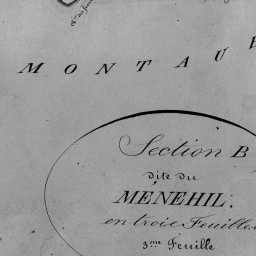 MONTAUB
Section B
dite du
MÉNEHIL.
en trois Feuilles
3me Feuille